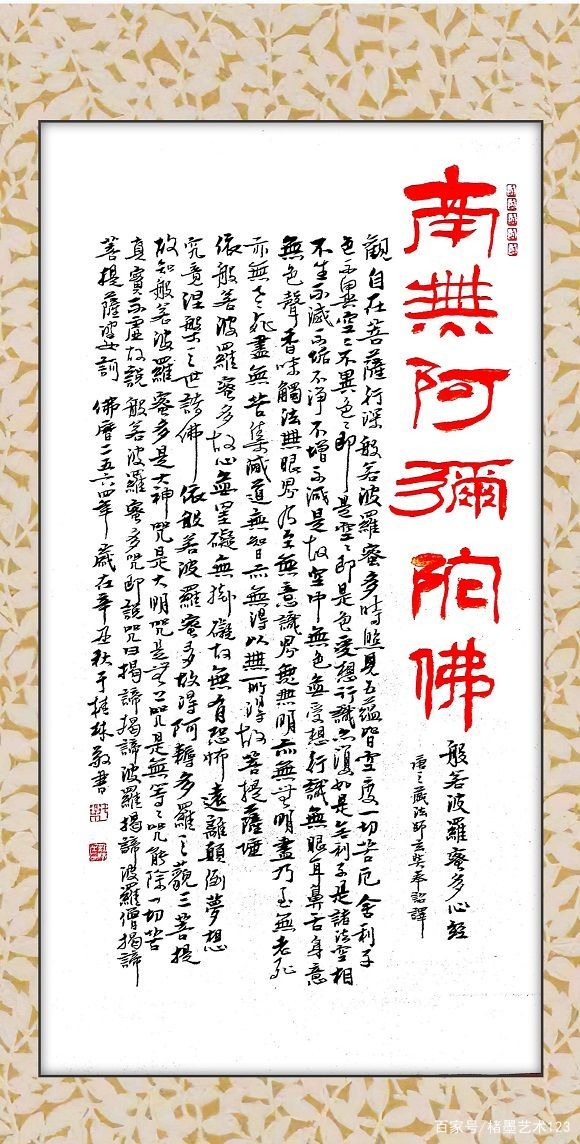 南無阿彌陀佛
般若波羅蜜多心經
唐三藏法師玄奘奉詔譯
觀自在菩薩行深般若波羅蜜多時照見五蘊皆空度一切苦厄舍利子
色不異空々不異色々即是空々即是色受想行識亦復如是舍利子是諸法空相
不生不滅不垢不淨不增不減是故空中無色無受想行識無眼耳鼻舌身意
無色聲香味觸法無眼界乃至無意識界無無明亦無無明盡乃至無老死
亦無老死盡無苦集滅道無智亦無得以無所得故菩提薩埵
依般若波羅蜜多故心無罣礙無掛礙故無有恐怖遠離顛倒夢想
究竟涅槃三世諸佛依般若波羅蜜多故得阿耨多羅三藐三菩提
故知般若波羅蜜多是大神咒是大明咒是無上咒是無等々咒能除一切苦
真實不虛故說般若波羅蜜多咒即說咒曰揭諦揭諦波羅揭諦波羅僧揭諦
菩提薩婆訶 佛曆二五六四年歲在辛丑秋于桂林敬書
百家号/楮墨艺术123